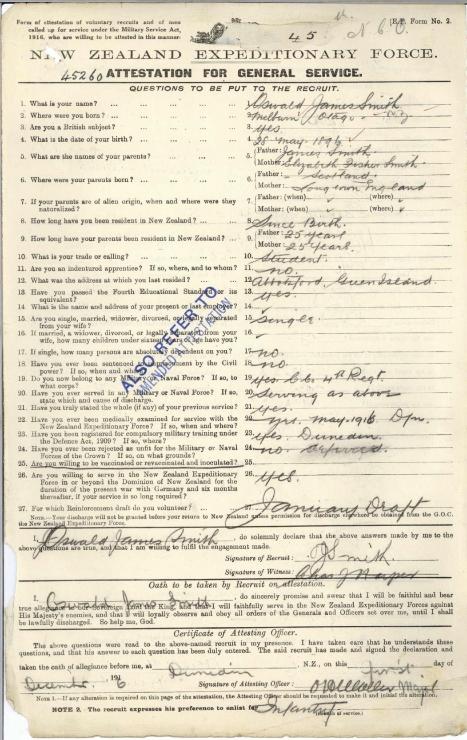 Form of attestation of voluntary recruits and of men
called up for service under the Military Service Act,
1916, who are willing to be attested in this manner.
45
N 6 O
[E.F. Form No. 2.
NEW ZEALAND EXPEDITIONARY FORCE.
45260 ATTESTATION FOR GENERAL SERVICE.
QUESTIONS TO BE PUT TO THE RECRUIT.
1. What is your name? ... 1. Oswald James Smith
2. Where were you born? ... 2. Otago N.Z
3. Are you a British subject? ... 3. yes.
4. What is the date of your birth? ... 4. 28 May 1896
5. What are the names of your parents? ... 5. Father: James Smith.
Mother: Elizabeth Fisher Smith.
6. Where were your parents born? ... 6. Father: Scotland.
Mother: Longtown England
7. If your parents are of alien origin, when and where were they
naturalized? 7. Father: (when) (where)
Mother: (when) (where)
8. How long have you been resident in New Zealand? ... 8. Since Birth.
9. How long have your parents been resident in New Zealand? ... 9. Father: 25 years
Mother: 25 years.
10. What is your trade or calling? ... 10. Student.
11. Are you an indentured apprentice? If so, where, and to whom? 11. no.
12. What was the address at which you last resided? ... 12. Abbotsford, Green Island.
13. Have you passed the Fourth Educational Standard or its
equivalent? 13. yes.
14. What is the name and address of your present or last employer? 14.
15. Are you single, married, widower, divorced, or legally separated
from your wife? 15. Single
16. If married, a widower, divorced, or legally separated from your
wife, how many children under sixteen years of age have you? 16.
17. If single, how many persons are absolutely dependent on you? 17. no.
18. Have you ever been sentenced to imprisonment by the Civil
power? If so, when and where? 18. no
19. Do you now belong to any Military or Naval Force? If so, to
what corps? 19. yes 4th Regt.
20. Have you ever served in any Military or Naval Force? If so,
state which and cause of discharge. 20. Serving as above
21. Have you truly stated the whole (if any) of your previous service? 21. yes.
22. Have you ever been medically examined for service with the
New Zealand Expeditionary Force? If so, when and where? 22. yes. May. 1916 Dn.
23. Have you been registered for compulsory military training under
the Defence Act, 1909? If so, where? 23. yes. Dunedin.
24. Have you ever been rejected as unfit for the Military or Naval
Forces of the Crown? If so, on what grounds? 24. no. deferred.
25. Are you willing to be vaccinated or revaccinated and inoculated? 25.
26. Are you willing to serve in the New Zealand Expeditionary Force
in or beyond the Dominion of New Zealand for the
duration of the present war with Germany and six months
thereafter, if your service is so long required? 26. yes.
27. For which Reinforcement draft do you volunteer? ... 27. January Draft
ALSO REFER TO
AMENDED ATTESTATION
NOTE.—Your discharge will not be granted before your return to New Zealand unless permission for discharge elsewhere be obtained from the G.O.C.
the New Zealand Expeditionary Force.
I, Oswald James Smith do solemnly declare that the above answers made by me to the
above questions are true, and that I am willing to fulfil the engagement made.
Signature of Recruit: Smith.
Signature of Witness: Harper
Oath to be taken by Recruit on attestation.
I, Oswald James Smith, do sincerely promise and swear that I will be faithful and bear
true allegiance to our Sovereign Lord the King, and that I will faithfully serve in the New Zealand Expeditionary Forces against
His Majesty's enemies, and that I will loyally observe and obey all orders of the Generals and Officers set over me, until I shall
be lawfully discharged. So help me, God.
Certificate of Attesting Officer.
The above questions were read to the above-named recruit in my presence. I have taken care that he understands these
questions, and that his answer to each question has been duly entered. The said recruit has made and signed the declaration and
taken the oath of allegiance before me, at Dunedin, N.Z., on this first day of
December 1916
Signature of Attesting Officer: Major
NOTE 1.—If any alteration is required on this page of the attestation, the Attesting Officer should be requested to make it and initial the alteration.
NOTE 2. The recruit expresses his preference to enlist for Infantry